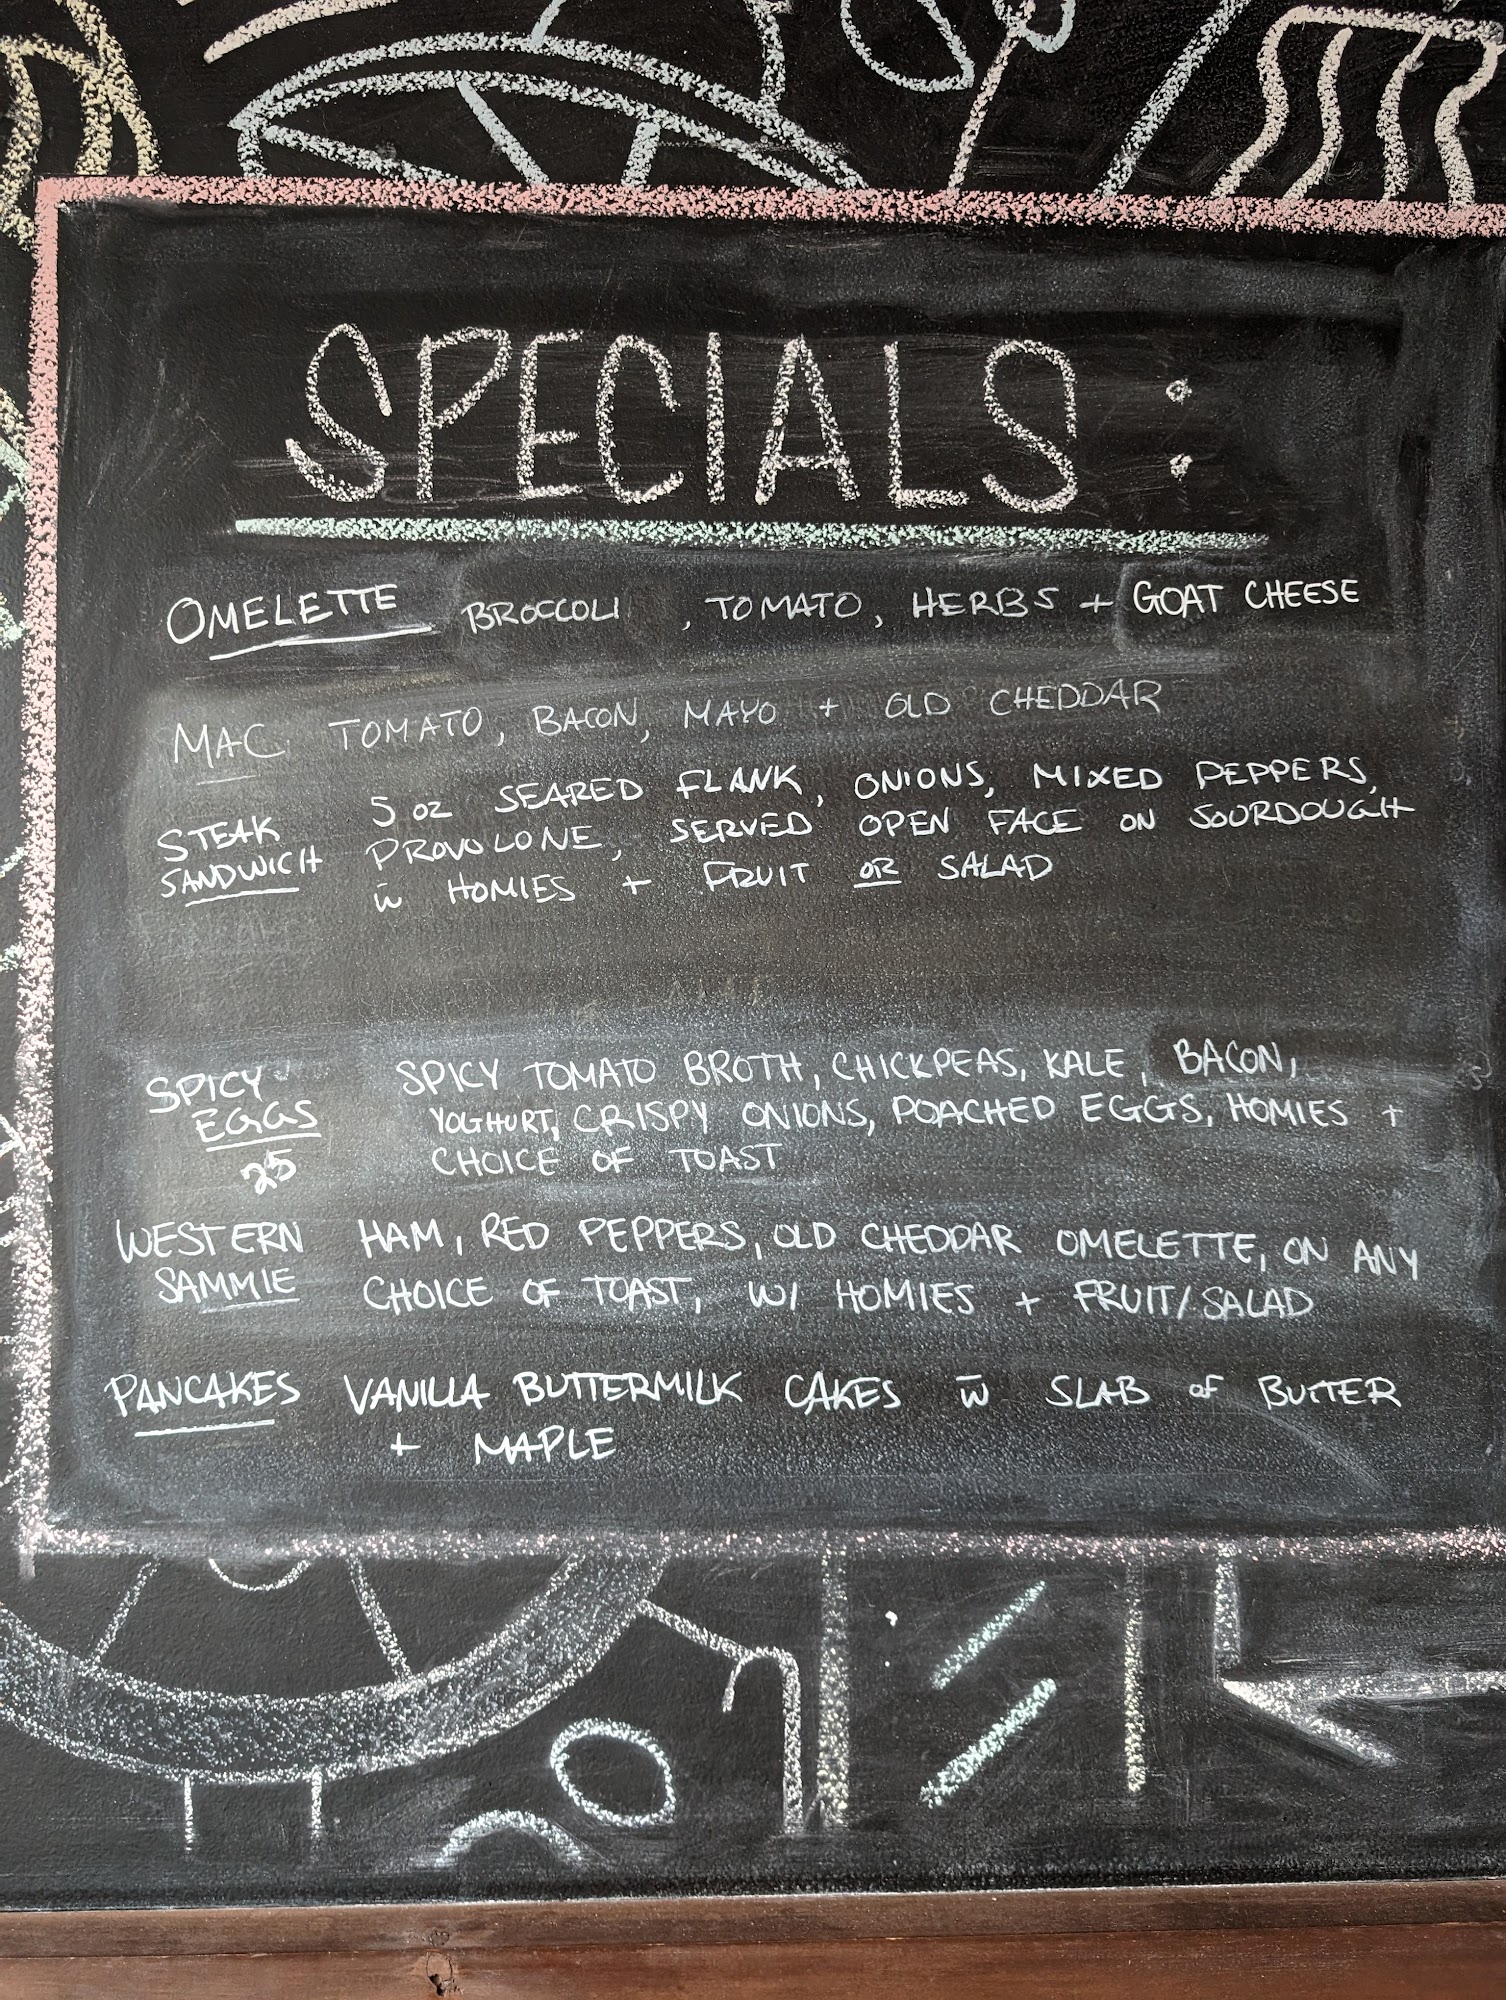 SPECIALS:
OMELETTE BROCCOLI , TOMATO, HERBS + GOAT CHEESE
MAC TOMATO, BACON, MAYO + OLD CHEDDAR
STEAK SANDWICH
5 oz SEARED FLANK, ONIONS, MIXED PEPPERS,
PROVOLONE, SERVED OPEN FACE ON SOURDOUGH
w̄ HOMIES + FRUIT OR SALAD
SPICY
EGGS
25
SPICY TOMATO BROTH, CHICKPEAS, KALE, BACON,
YOGHURT, CRISPY ONIONS, POACHED EGGS, HOMIES +
CHOICE OF TOAST
WESTERN
SAMMIE
HAM, RED PEPPERS, OLD CHEDDAR OMELETTE, ON ANY
CHOICE OF TOAST, W/ HOMIES + FRUIT/SALAD
PANCAKES VANILLA BUTTERMILK CAKES w̄ SLAB of BUTTER
+ MAPLE